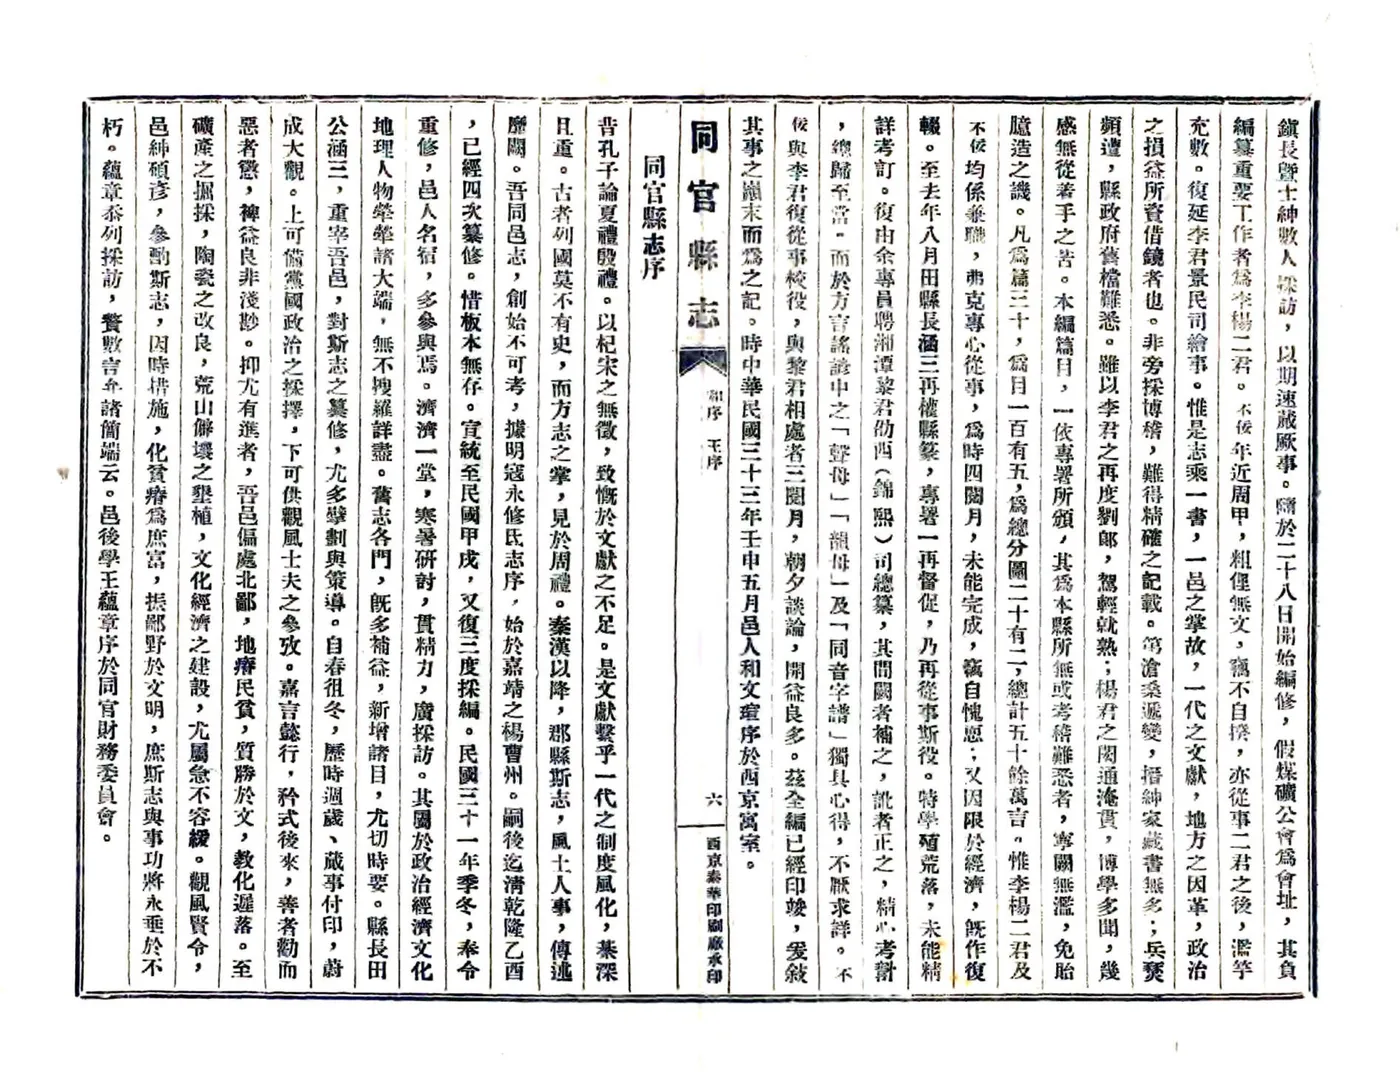 鎭長暨士紳數人採訪，以期速蕆厥事。爾於二十八日開始編修，假煤礦公會爲會址，其負
編纂重要工作者爲李楊二君。不佞年近周甲，粗俚無文，竊不自揆，亦從事二君之後，濫竽
充數。復延李君景民司繪事。惟是志乘一書，一邑之掌故，一代之文獻，地方之因革，政治
之損益所資借鏡者也。非旁採博稽，難得精確之記載。第滄桑遞變，搢紳家藏書無多；兵燹
頻遭，縣政府舊檔難悉。雖以李君之再度劉郞，駕輕就熟；楊君之閎通淹貫，博學多聞，幾
感無從著手之苦。本編篇目，一依專署所頒，其爲本縣所無或考稽難悉者，寧闕無濫，免貽
臆造之譏。凡爲篇三十，爲目一百有五，爲總分圖二十有二，總計五十餘萬言。惟李楊二君及
不佞均係兼職，弗克專心從事，爲時四閱月，未能完成，竊自愧恧；又因限於經濟，旣作復
輟。至去年八月田縣長涵三再權縣篆，專署一再督促，乃再從事斯役。特學殖荒落，未能精
詳考訂。復由余專員聘湘潭黎君劭西（錦熙）司總纂，其間闕者補之，訛者正之，精心考訂
，總歸至當。而於方言謠諺中之「聲母」「韻母」及「同音字譜」獨具心得，不厭求詳。不
佞與李君復從事校役，與黎君相處者三閱月，朝夕談論，開益良多。茲全編已經印竣，爰敍
其事之巔末而爲之記。時中華民國三十三年壬申五月邑人和文瑄序於西京寓室。
同官縣志
和序　王序
六
西京秦華印刷廠承印
同官縣志序
昔孔子論夏禮殷禮。以杞宋之無徵，致慨於文獻之不足。是文獻繫乎一代之制度風化，綦深
且重。古者列國莫不有史，而方志之掌，見於周禮。秦漢以降，郡縣斯志，風土人事，傳述
靡闕。吾同邑志，創始不可考，據明寇永修氏志序，始於嘉靖之楊曹州。嗣後迄淸乾隆乙酉
，已經四次纂修。惜板本無存。宣統至民國甲戌，又復三度採編。民國三十一年季冬，奉令
重修，邑人名宿，多參與焉。濟濟一堂，寒暑研討，貫精力，廣採訪。其屬於政治經濟文化
地理人物犖犖諸大端，無不搜羅詳盡。舊志各門，旣多補益，新增諸目，尤切時要。縣長田
公涵三，重宰吾邑，對斯志之纂修，尤多擘劃與策導。自春徂冬，歷時週歲、蕆事付印，蔚
成大觀。上可備黨國政治之採擇，下可供觀風士夫之參攷。嘉言懿行，矜式後來，善者勸而
惡者懲，裨益良非淺尠。抑尤有進者，吾邑偏處北鄙，地瘠民貧，質勝於文，敎化遲落。至
礦產之掘採，陶瓷之改良，荒山僻壤之墾植，文化經濟之建設，尤屬急不容緩。觀風賢令，
邑紳碩彥，參酌斯志，因時措施，化貧瘠爲庶富，振鄙野於文明，庶斯志與事功將永垂於不
朽。蘊章忝列採訪，贅數言弁諸簡端云。邑後學王蘊章序於同官財務委員會。